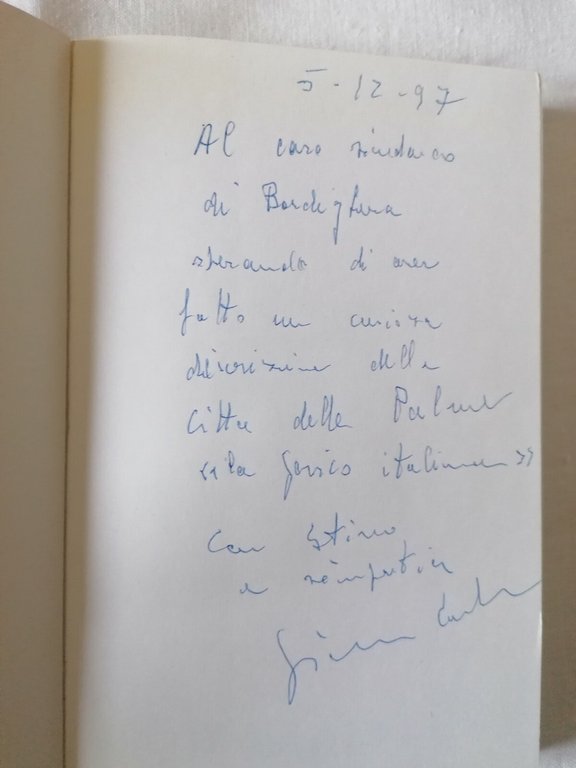 5-12-97
Al caro sindaco
di Bordighera
sperando di aver
fatto una curiosa
descrizione della
Città delle Palme
«la Gerico italiana»
Con stima
e simpatia